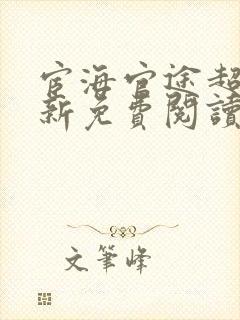 宦海官途超
新免費閱讀
文筆峰